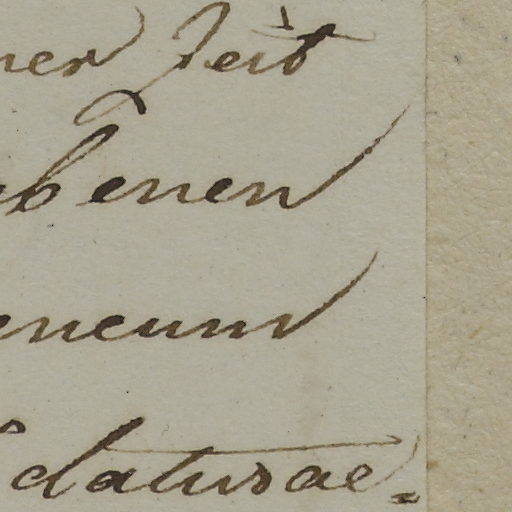 ner Zeit
benen
eneum
daturae=